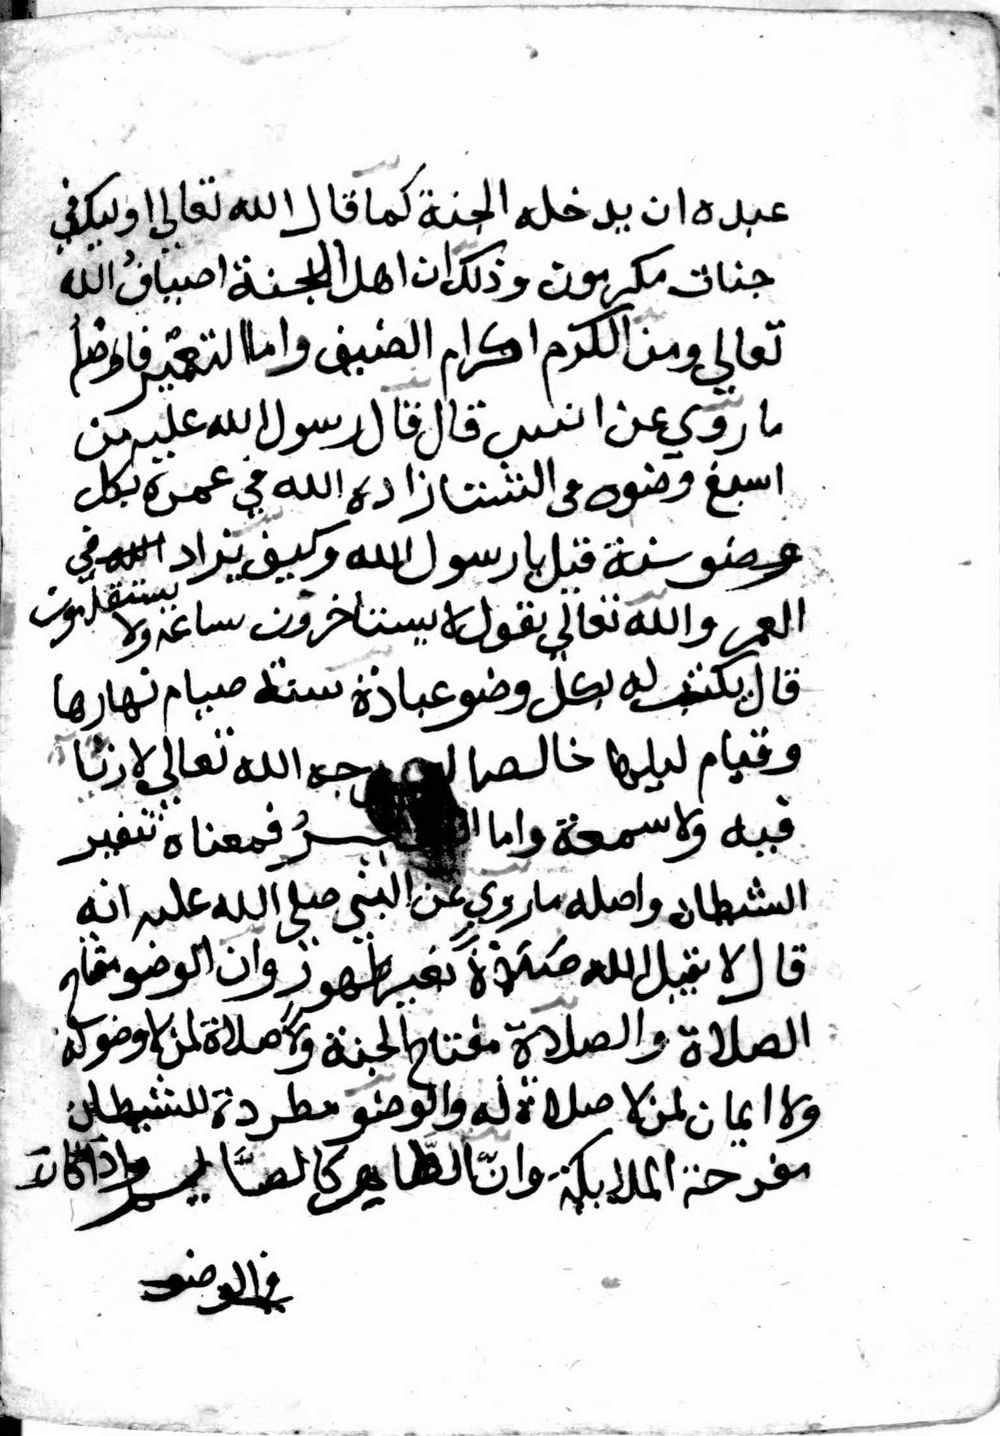 عبده ان يدخله الجنة كما قال الله تعالي اوليك في
جنات مكرمون وذلك ان اهل الجنة اضياف الله
تعالي ومن الكرم اكرام الضيف واما التعمير فاوضله
ما روي عن انس قال قال رسول الله عليه من
اسبغ وضوه في الشتا زاده الله في عمره بكل
عضو سنة قيل يا رسول الله وكيف يزاد الله في
العمر والله تعالي يقول لا يستاخرون ساعة ولا يستقدمون
قال يكتب له بكل وضو عبادة سنة صيام نهارها
وقيام ليلها خالصا وجه الله تعالي لا ريا
فيه ولا سمعة واما فمعناه تنفير
الشيطان واصله ما روي عن النبي صلي الله عليه انه
قال لا يقبل الله صلاة بغير طهور وان الوضو مفتاح
الصلاة والصلاة مفتاح الجنة ولا صلاة لمن لا وضو له
ولا ايمان لمن لا صلاة له والوضو مطردة للشيطان
مفرحة الملايكة وان الطاهر كالصايم واذا كان
في الوضو